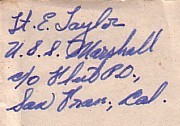 Lt. E. Taylor
U.S.S. Marshall
c/o Fleet P.O.,
San Fran., Cal.